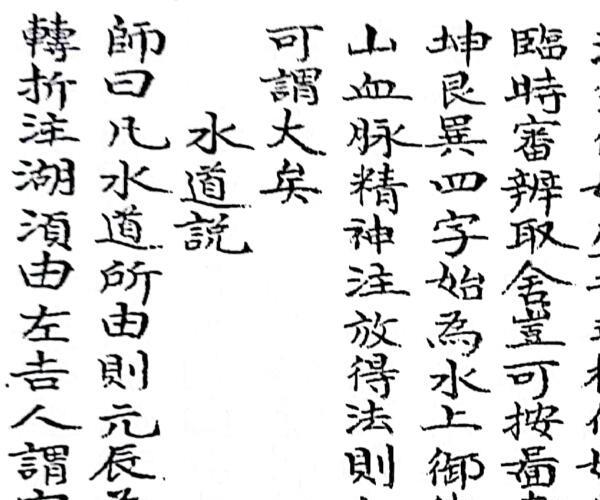 臨時審辨取舍豈可按啚
坤艮巽四字始為水上御
山血脉精神注放得法則
可謂大矣
水道説
師曰凡水道所由則元辰
轉折注湖湏由左吉人謂